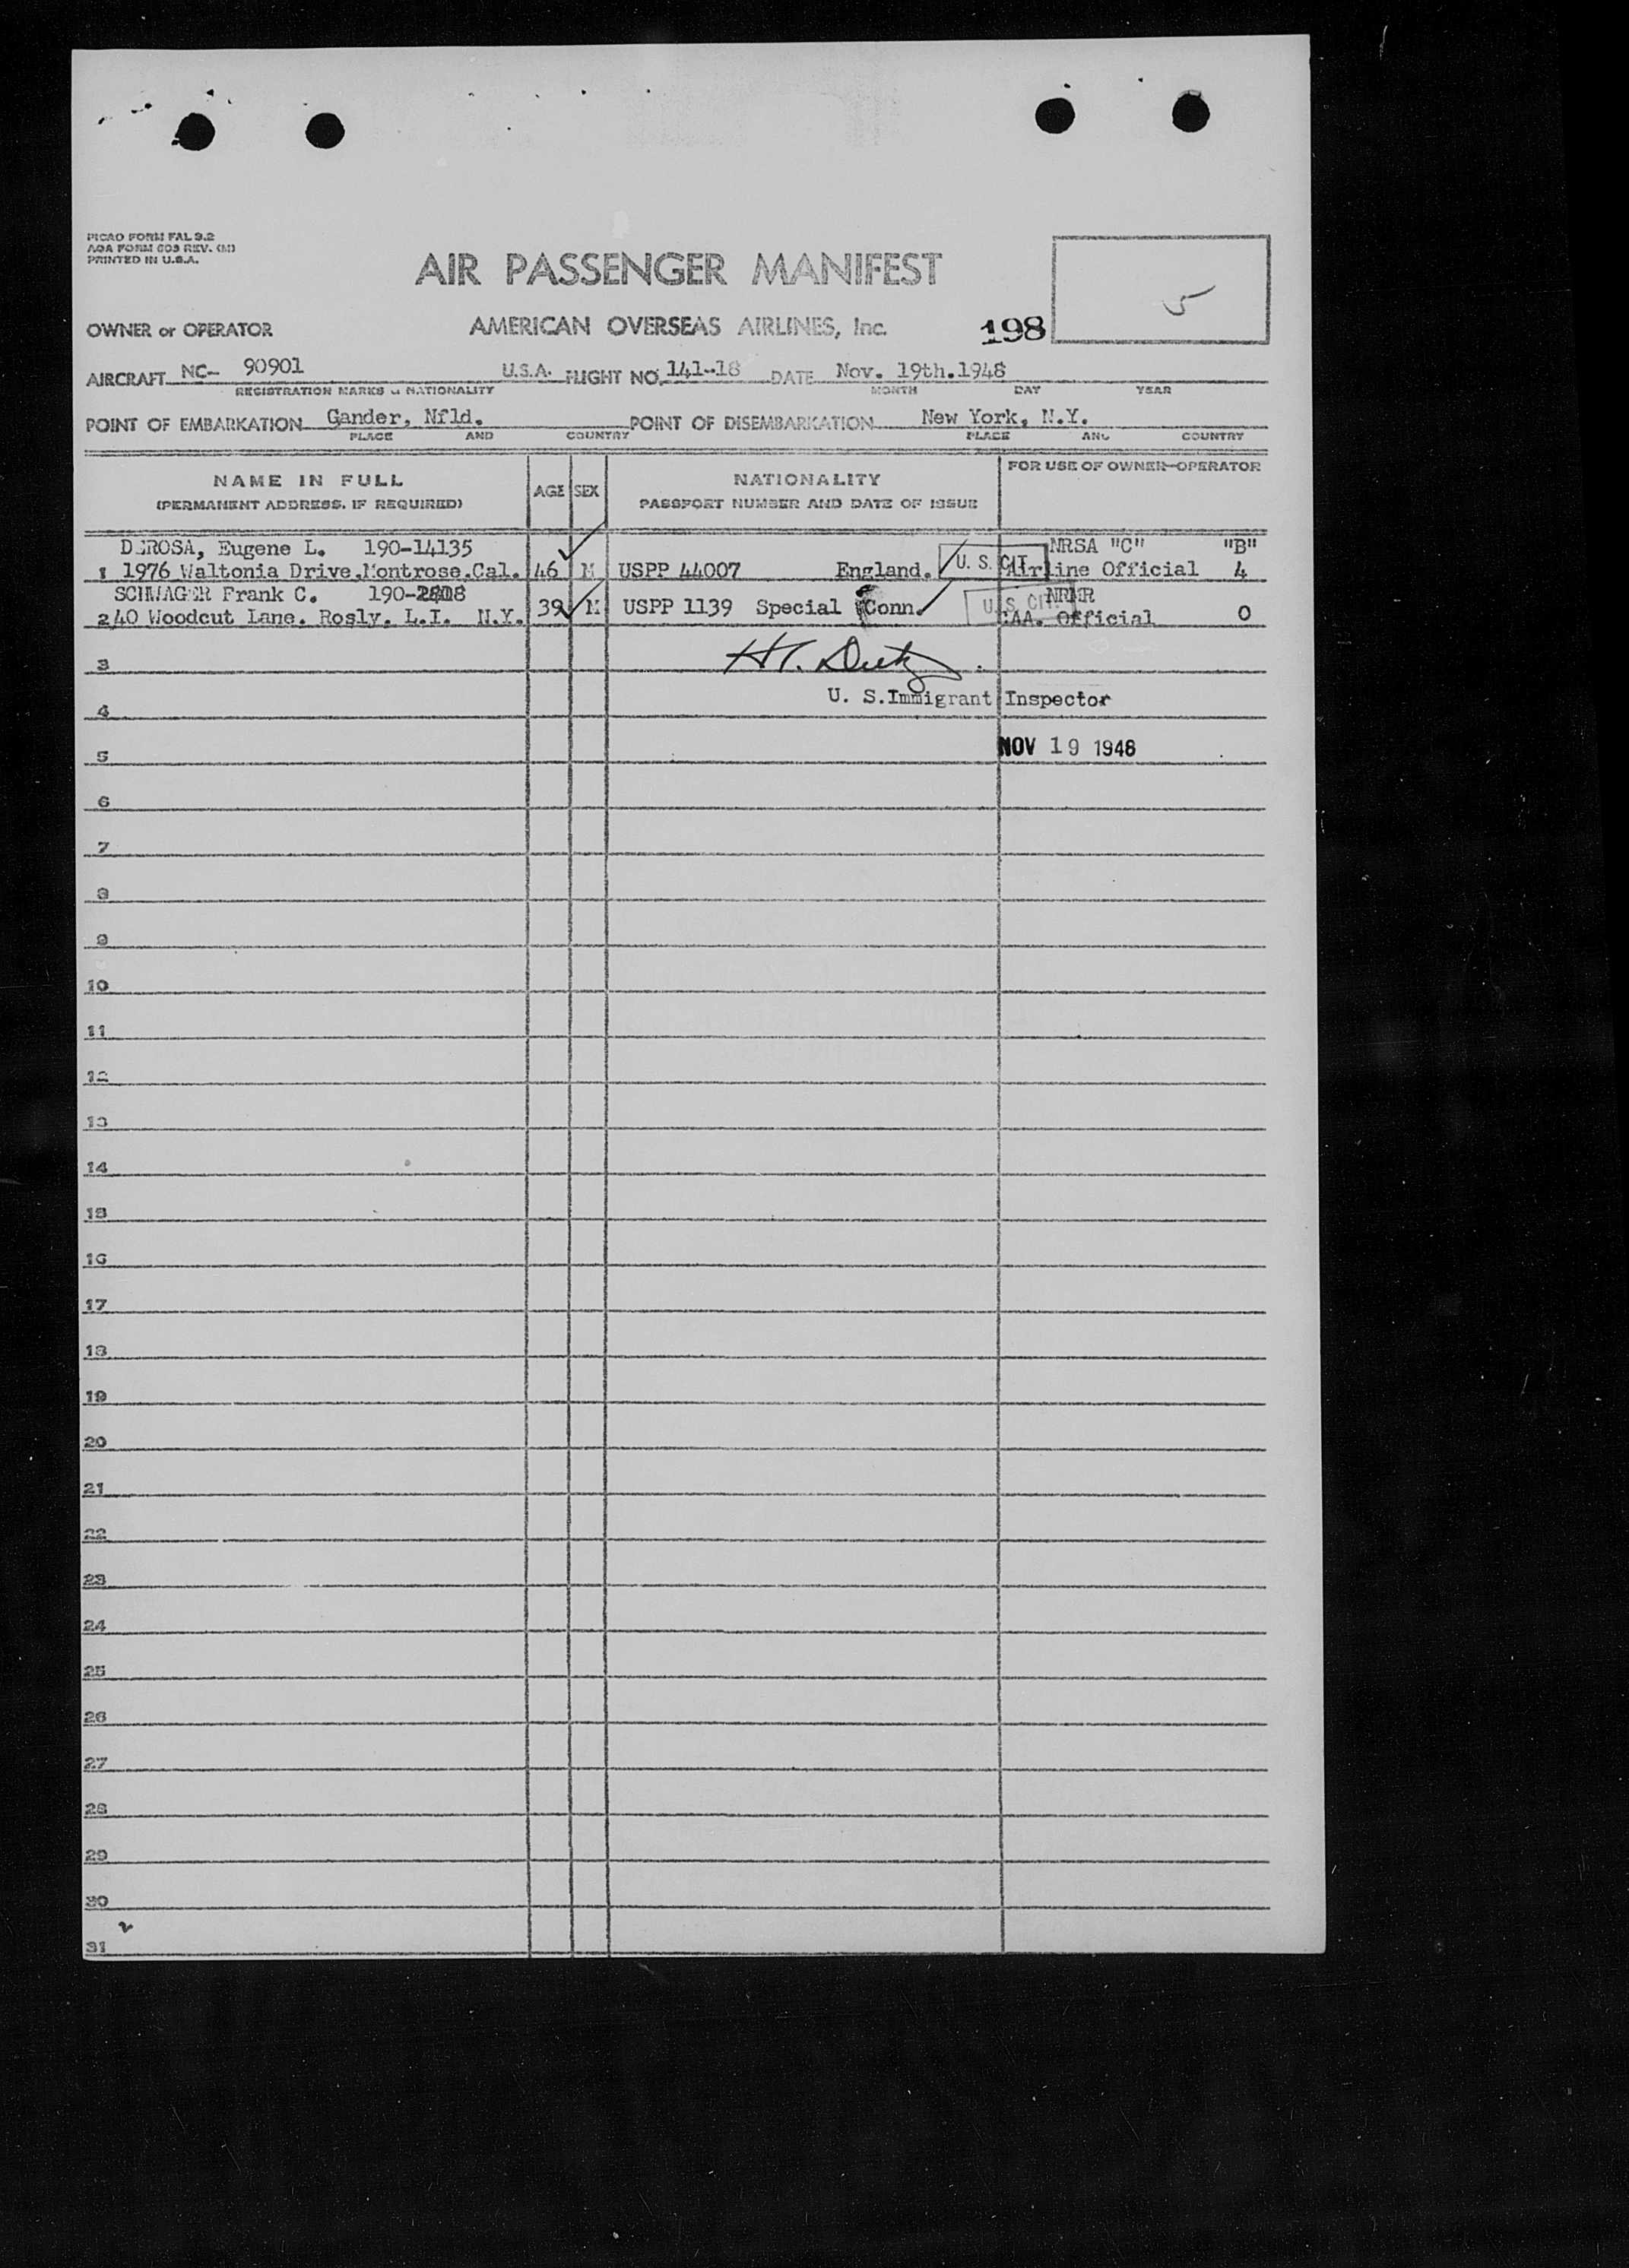 PICAO FORM FAL 3.2
AOA FORM 603 REV. (M)
PRINTED IN U.S.A.
AIR PASSENGER MANIFEST
5
OWNER or OPERATOR AMERICAN OVERSEAS AIRLINES, Inc. 198
AIRCRAFT NC- 90901 U.S.A. FLIGHT NO. 141-18 DATE Nov. 19th.1948
REGISTRATION MARKS & NATIONALITY MONTH DAY YEAR
POINT OF EMBARKATION Gander, Nfld. POINT OF DISEMBARKATION New York, N.Y.
PLACE AND COUNTRY PLACE AND COUNTRY
NAME IN FULL AGE SEX NATIONALITY FOR USE OF OWNER-OPERATOR
(PERMANENT ADDRESS, IF REQUIRED) PASSPORT NUMBER AND DATE OF ISSUE
DEROSA, Eugene L. 190-14135 NRSA "C" "B"
1 1976 Waltonia Drive.Montrose.Cal. 46 M USPP 44007 England. U. S. CIT. Airline Official 4
SCHWAGER Frank C. 190- NRNR
2 40 Woodcut Lane. Rosly. L.I. N.Y. 39 M USPP 1139 Special Conn. U. S. CIT. CAA. Official 0
3
U. S.Immigrant Inspector
4
NOV 19 1948
5
6
7
8
9
10
11
12
13
14
15
16
17
18
19
20
21
22
23
24
25
26
27
28
29
30
31